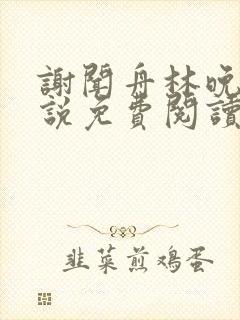 謝聞舟林晚
説免費閱讀
韭菜煎鸡蛋